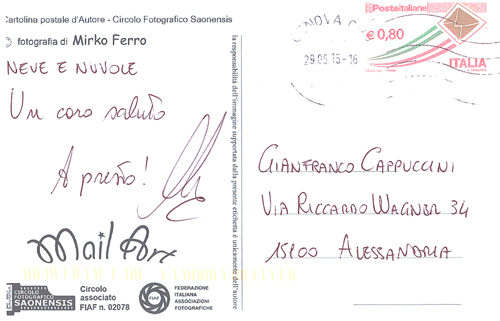 Cartolina postale d'Autore - Circolo Fotografico Saonensis
fotografia di Mirko Ferro
NEVE E NUVOLE
Un caro saluto
A presto!
Mail Art
CIRCOLO
FOTOGRAFICO
SAONENSIS
Circolo
associato
FIAF n. 02078
FIAF
FEDERAZIONE
ITALIANA
ASSOCIAZIONI
FOTOGRAFICHE
la responsabilità dell'immagine supportata dalla presente etichetta è unicamente dell'autore
GENOVA
29.05.15-16
Posteitaliane
€ 0,80
ITALIA
GIANFRANCO CAPPUCCINI
VIA RICCARDO WAGNER 34
15100 ALESSANDRIA